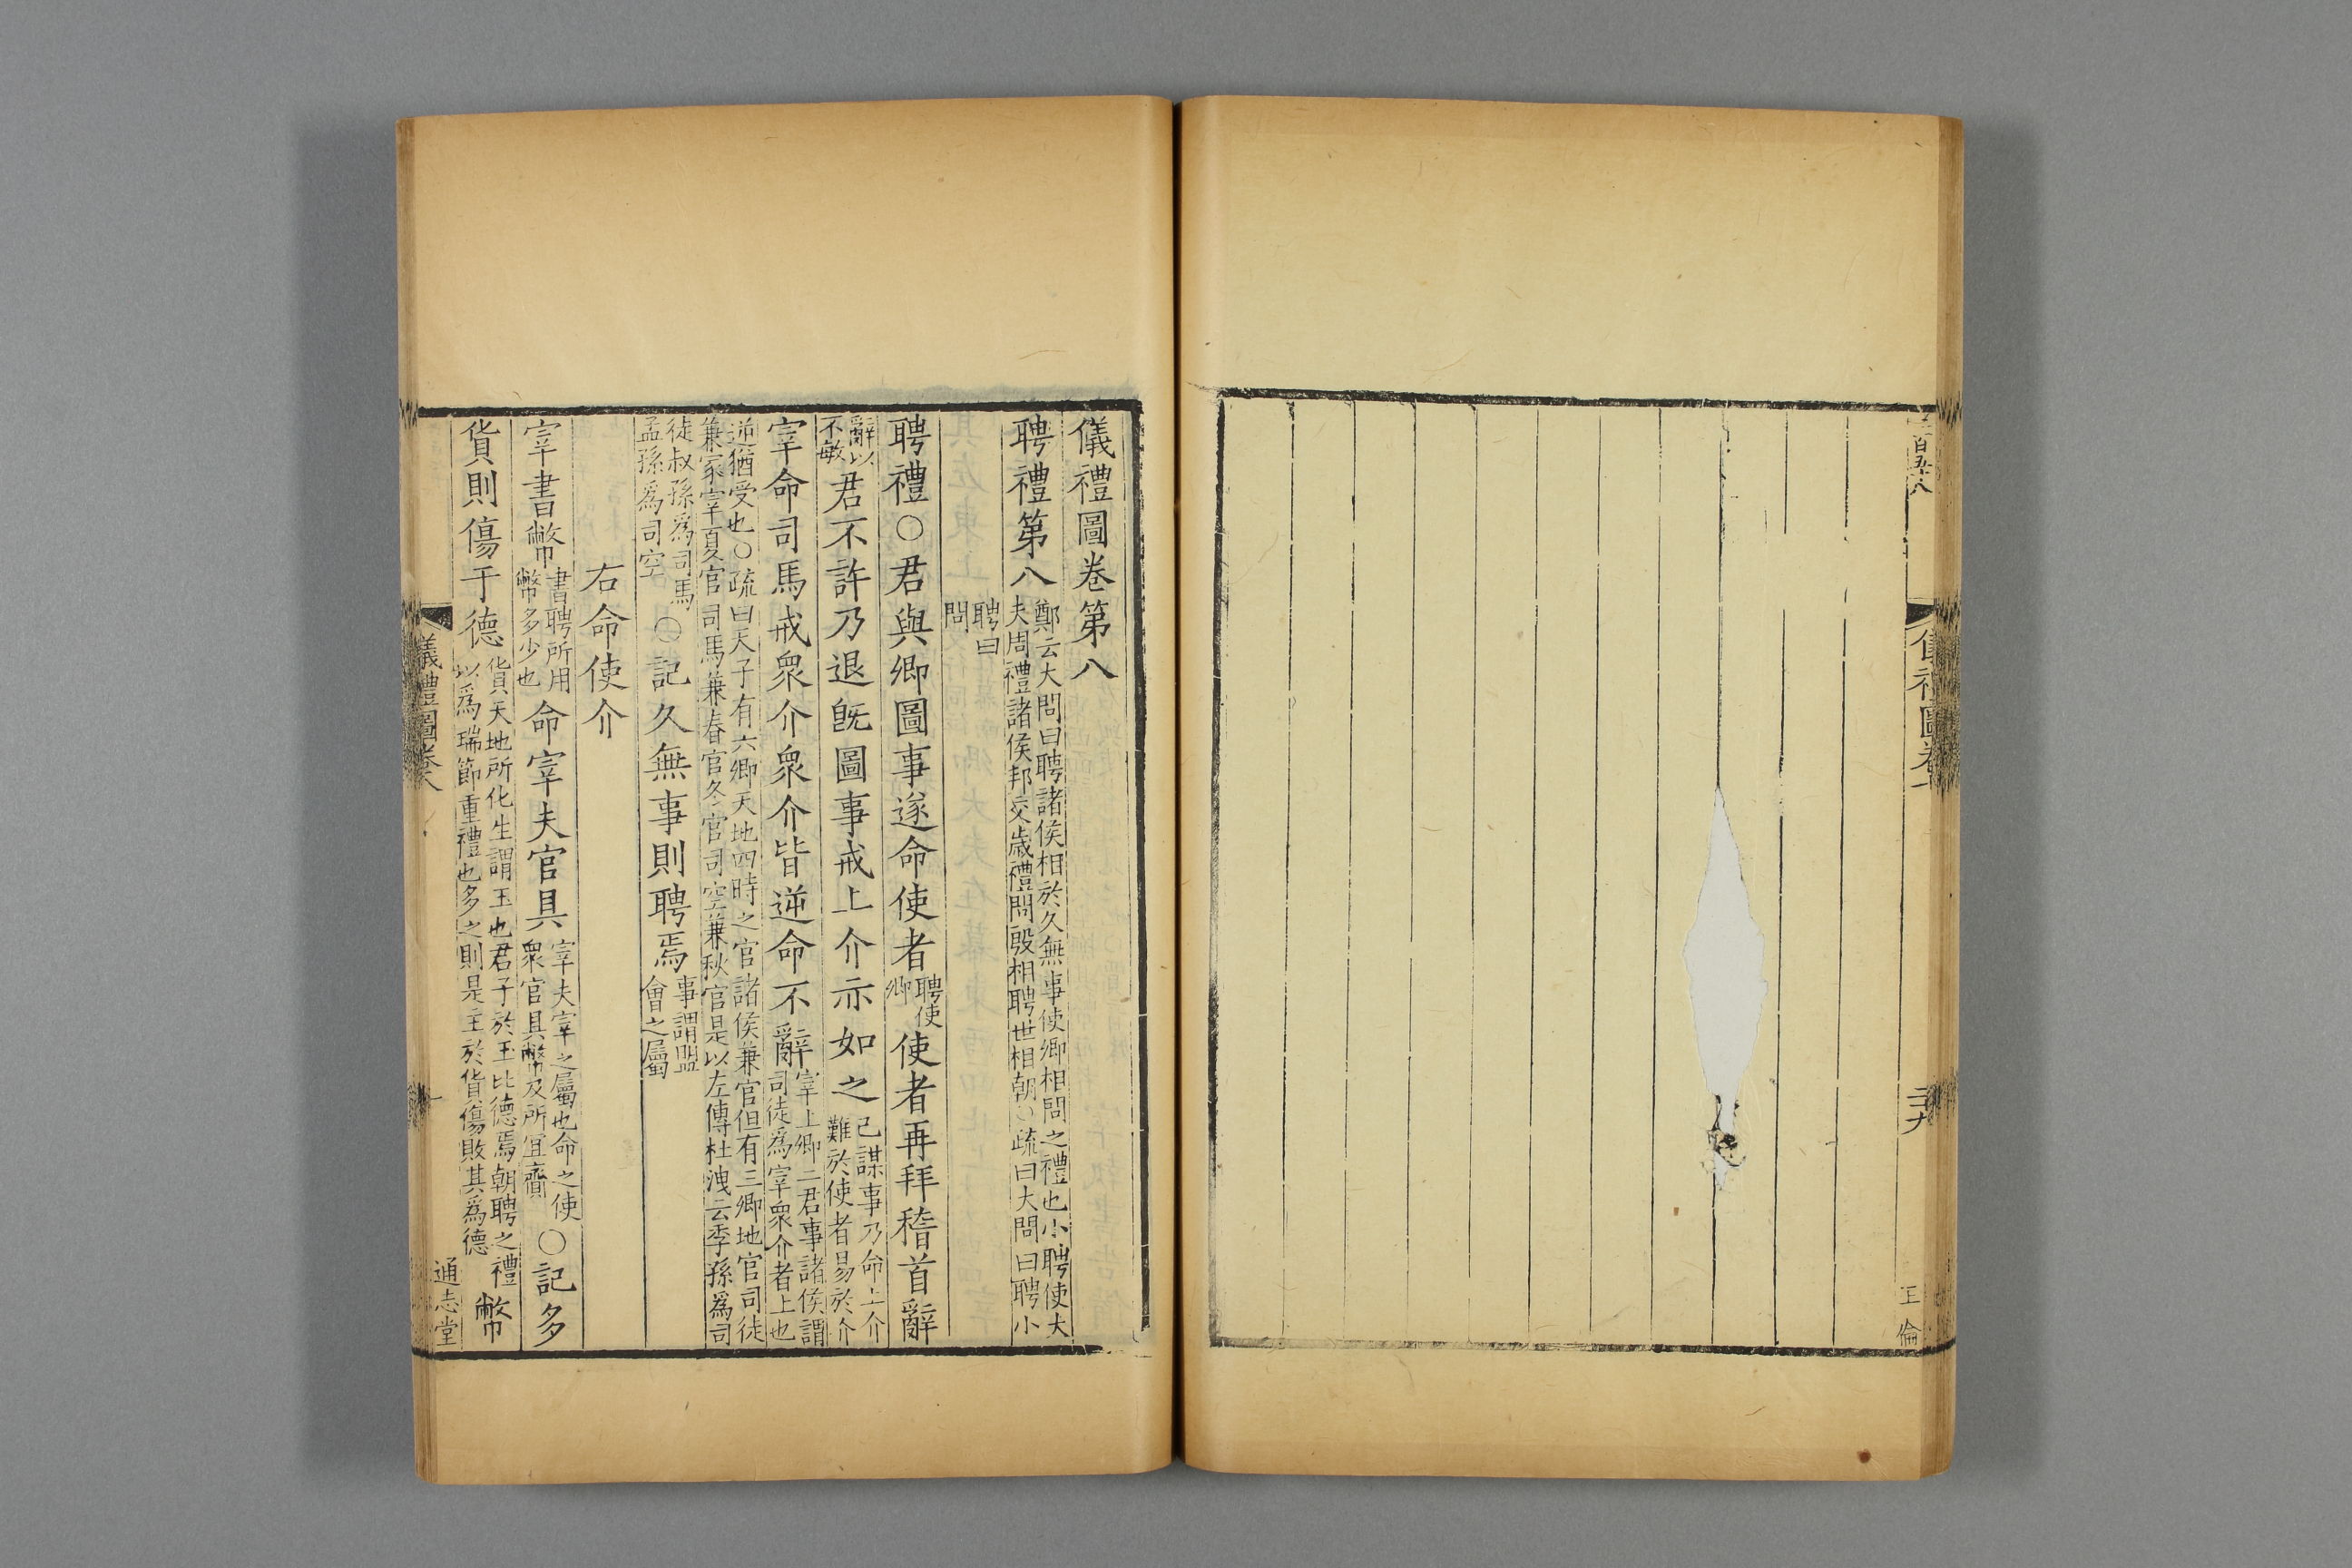 儀禮圖卷
三十九
王倫
儀禮圖卷第八
聘禮第八鄭云大問曰聘諸侯相於久無事使卿相問之禮也小聘使大
夫周禮諸侯邦交歲禮問殷相聘世相朝○疏曰大問曰聘小
聘曰
問
聘禮○君與卿圖事遂命使者聘使
卿使者再拜稽首辭
辭以
不敏君不許乃退既圖事戒上介示如之已謀事乃命上介
難於使者易於介
宰命司馬戒衆介衆介皆逆命不辭宰上卿二君事諸侯謂
司徒爲宰衆介者上也
逆猶受也○疏曰天子有六卿天地四時之官諸侯兼官但有三卿地官司徒
兼冢宰夏官司馬兼春官冬官司空兼秋官是以左傳杜洩云季孫爲司
徒叔孫爲司馬
孟孫爲司空○記久無事則聘焉事謂盟
會之屬
右命使介
宰書幣書聘所用
幣多少也命宰夫官具宰夫宰之屬也命之使
衆官具幣及所宜齎○記多
貨則傷于德貨天地所化生謂玉也君子於玉比德焉朝聘之禮
以爲瑞節重禮也多之則是主於貨傷敗其爲德幣
儀禮圖卷八
一
通志堂